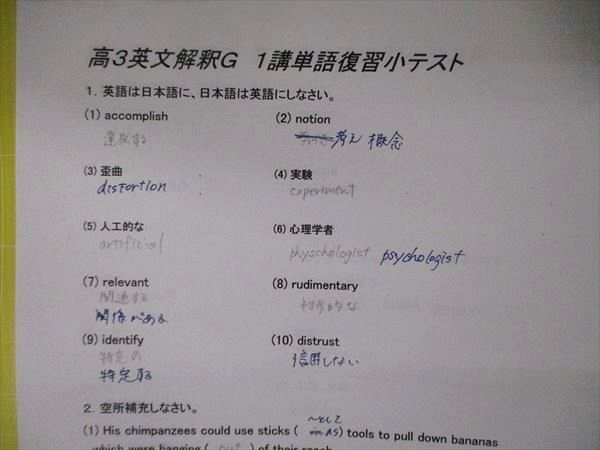 高3英文解釈G 1講単語復習小テスト
1. 英語は日本語に、日本語は英語にしなさい。
(1) accomplish (2) notion
達成する 考え 概念
(3) 歪曲 (4) 実験
distortion experiment
(5) 人工的な (6) 心理学者
artificial physchologist psychologist
(7) relevant (8) rudimentary
関連する 初歩的な
関係がある
(9) identify (10) distrust
特定の 信用しない
特定する
2. 空所補充しなさい。
〜として
(1) His chimpanzees could use sticks ( as ) tools to pull down bananas
which were hanging ( out ) of their reach